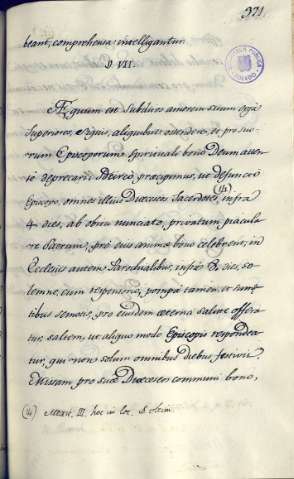 371.
beant, comprehensa intelligantur.
§. VII.
Æquum est Subditos amorem suum ergà
Superiores, signis, aliquibus ostendere, et pro suo-
rum Episcoporum spirituali bono Deum
deprecari: Idcircò præcipimus, ut defuncto
Episcopo, omnes illius Diœcesis Sacerdotes, (14) infrà
4 dies, ab obitu nunciato, privatim piacula-
re Sacrum, pro eius animæ bono celebrent; in
Ecclesiis autem Parochialibus, infrà 8. dies, so-
lemne, cum responsorio, pompâ tamen, et
semotis, pro eiusdem æterna salute offera-
tur, saltem, ut aliquo modo Episcopis respondea-
tur, qui non solum omnibus diebus, festivis
Missam pro suæ Diœcesis communi bono,
(14) Mexic. III. hoc in loc. §.